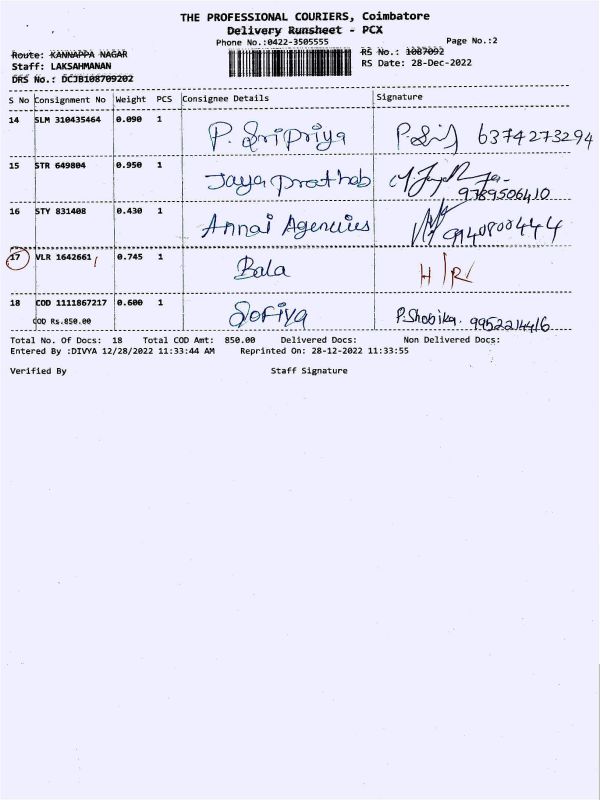 THE PROFESSIONAL COURIERS, Coimbatore
Delivery Runsheet - PCX
Phone No.:0422-3505555 Page No.:2
Route: KANNAPPA NAGAR RS No.: 1087092
Staff: LAKSAHMANAN RS Date: 28-Dec-2022
DRS No.: DCJB108709202
S No Consignment No Weight PCS Consignee Details Signature
14 SLM 310435464 0.090 1 P. Sripriya P. Sri 6374273294
15 STR 649804 0.950 1 Jaya prathab
9789506410
16 STY 831408 0.430 1 Annai Agencies 9940800444
17 VLR 1642661 0.745 1 Bala H/R
18 COD 1111867217 0.600 1 Sofiya P. Shobika. 9952214416
COD Rs.850.00
Total No. Of Docs: 18 Total COD Amt: 850.00 Delivered Docs: Non Delivered Docs:
Entered By :DIVYA 12/28/2022 11:33:44 AM Reprinted On: 28-12-2022 11:33:55
Verified By Staff Signature